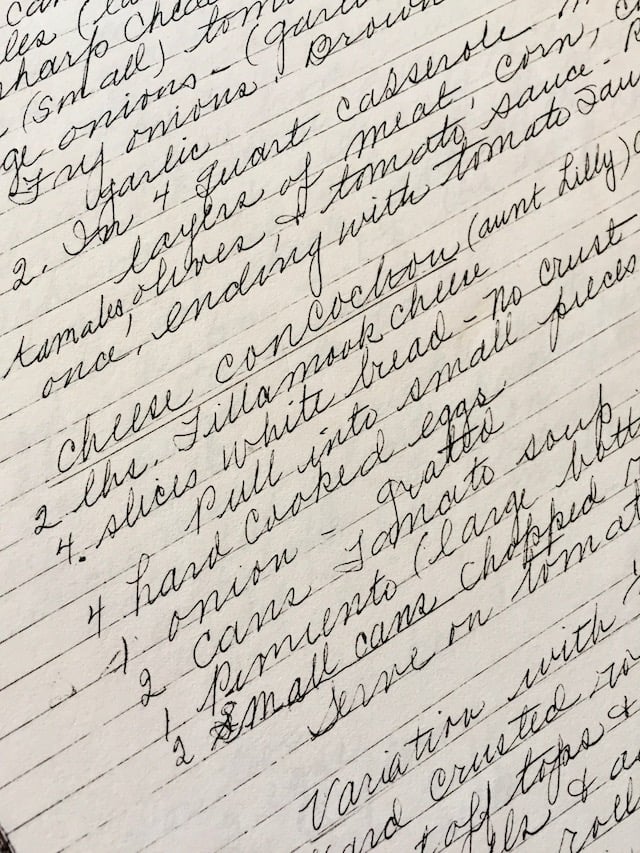 can
les (la
sharp chea
(small) toma
ge onions - (garli
Fry onions. Brown
garlic.
2. In 4 quart casserole m
layers of meat, corn, c
tamales, olives, & tomato sauce - R
once, ending with tomato sau
Cheese Concoction (aunt Lilly)
2 lbs. Tillamook cheese
4. slices white bread - no crust
Pull into small pieces
4 hard cooked eggs
1 onion - grated
2 cans Tomato soup
1 Pimiento (large bott
2 small cans chopped
Serve on tomat
Variation with
ard crusted ro
t off tops &
ls & a
roll